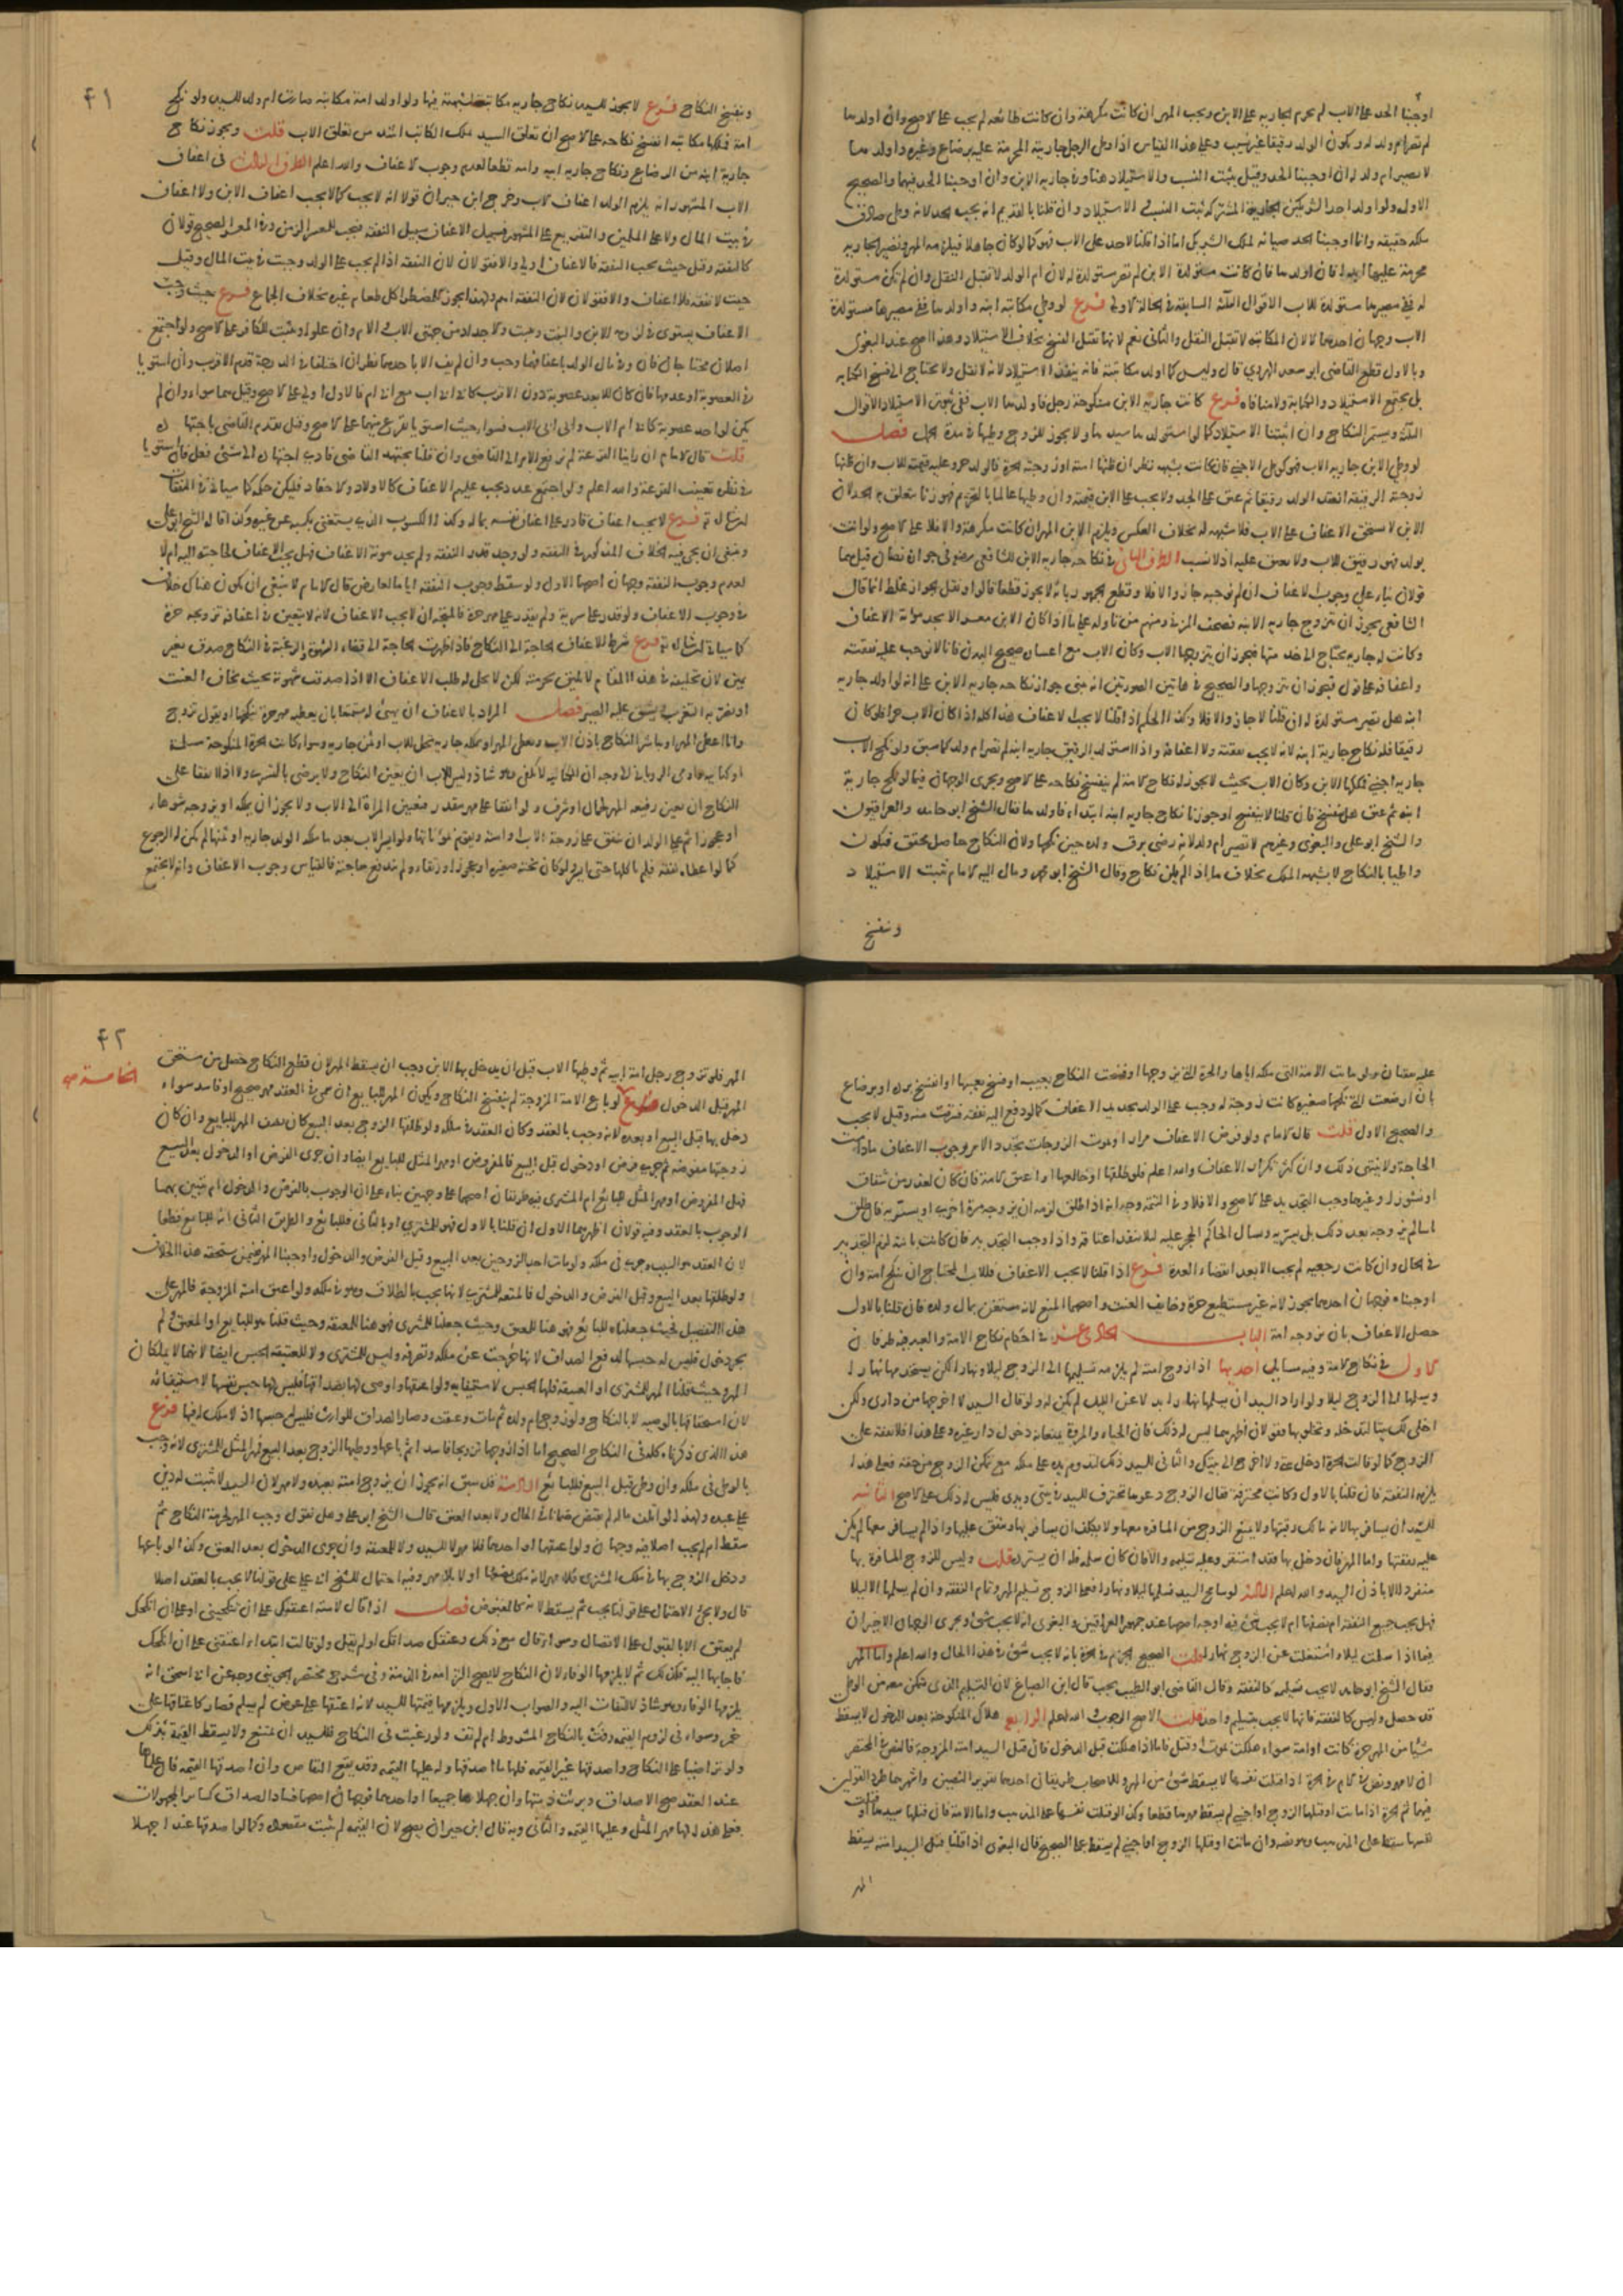 اوجبنا الحد على الاب لم تحرم الجارية على الابن ويجب المهر ان كانت مكرهة وان كانت طائعة لم يجب على الاصح وان اولدها
لم تصر ام ولد له ويكون الولد رقيقا غير نسيب وعلى هذا القياس اذا وطئ الرجل جاريته المحرمة عليه برضاع وغيره واولدها
لا تصير ام ولد له ان اوجبنا الحد وقيل يثبت النسب والاستيلاد هنا وفي جارية الابن وان اوجبنا الحد فيهما والصحيح
الاول ولو اولد احد الشريكين الجارية المشتركة ثبت النسب والاستيلاد وان قلنا بالقديم انه يجب الحد لانه وطئ صادف
ملكه حقيقة وانما اوجبنا الحد صيانة لملك الشريك اما اذا قلنا لا حد على الاب فهو كما لو كان جاهلا فيلزمه المهر وتصير الجارية
محرمة عليهما ابدا فان اولدها فان كانت مستولدة الابن لم تصر مستولدة له لان ام الولد لا تقبل النقل وان لم تكن مستولدة
له ففي مصيرها مستولدة للاب الاقوال الثلثة السابقة في الحالة الاولى فرع لو وطئ مكاتبة ابنه واولدها ففي مصيرها مستولدة
الاب وجهان احدهما لا لان المكاتبة لا تقبل النقل والثاني نعم لانها تقبل الفسخ بخلاف الاستيلاد وهذا اصح عند البغوي
وبالاول قطع القاضي ابو سعد الهروي قال وليس كما اولد مكاتبة نفسه فانه ينفذ الاستيلاد لانه لا نقل ولا يحتاج الى فسخ الكتابة
بل يجتمع الاستيلاد والكتابة ولا منافاة فرع كانت جارية الابن منكوحة رجل فاولدها الاب ففي ثبوت الاستيلاد الاقوال
الثلثة ويستمر النكاح وان اثبتنا الاستيلاد كما لو استولدها سيدها ولا يجوز للزوج وطيها في مدة الحمل فصل
لو وطئ الابن جارية الاب فهو كوطئ الاجنبي فان كانت بشبهة نظر ان ظنها امته او زوجته الحرة فالولد حر وعليه قيمته للاب وان ظنها
زوجته الرقيقة انعقد الولد رقيقا ثم عتق على الجد ولا يجب على الابن قيمته وان وطيها عالما بالتحريم فهو زنا يتعلق به الحد لان
الابن لا يستحق الاعفاف على الاب فلا شبهة له بخلاف العكس ويلزم الابن المهر ان كانت مكرهة والا فلا على الاصح ولو اتت
بولد فهو رقيق للاب ولا يعتق عليه اذ لا نسب الطرف الثاني في نكاحه جارية الابن للشافعي رضي في جوازه نصان قيل هما
قولان بناء على وجوب الاعفاف ان لم نوجبه جاز والا فلا وقطع الجمهور بانه لا يجوز قطعا قالوا ونقل الجواز غلط انما قال
الشافعي يجوز ان يتزوج جارية الابنه فصحف المزني ومنهم من تاوله على ما اذا كان الابن معسرا لا يجد مؤنة الاعفاف
وكانت له جارية يحتاج الى خدمتها فيجوز ان يتزوجها الاب وكان الاب مع اعساره صحيح البدن فانا لا نوجب عليه نفقته
واعفافه على قول فيجوز ان يتزوجها والصحيح في هاتين الصورتين انه يبنى جواز نكاحه جارية الابن على انه لو اولد جارية
ابنه هل تصير مستولدة له ان قلنا لا جاز والا فلا وكذا الحكم اذا قلنا لا يجب الاعفاف هذا كله اذا كان الاب حرا فلو كان
رقيقا فله نكاح جارية ابنه لانه لا يجب نفقته ولا اعفافه واذا استولد الرقيق جارية ابنه لم تصر ام ولد كما سبق ولو نكح الاب
جارية اجنبي فملكها الابن وكان الاب بحيث لا يجوز له نكاح الامة لم ينفسخ نكاحه على الاصح ويجري الوجهان فيما لو نكح جارية
ابنه ثم عتق هل ينفسخ فان قلنا لا ينفسخ او جوزنا نكاح جارية ابنه ابتداء فاولدها فقال الشيخ ابو حامد والعراقيون
والشيخ ابو علي والبغوي وغيرهم لا تصير ام ولد لانه رضي برق ولده حين نكحها ولان النكاح حاصل محقق فيكون
واطيا بالنكاح لا بشبهة الملك بخلاف ما اذا لم يكن نكاح وقال الشيخ ابو محمد ومال اليه الامام يثبت الاستيلاد
وينفسخ
٤١
وينفسخ النكاح فرع لا يجوز للسيد نكاح جارية مكاتبه لشبهته فيها ولو اولد امة مكاتبه صارت ام ولد للسيد ولو نكح
امة فملكها مكاتبه انفسخ نكاحه على الاصح لان تعلق السيد بملك المكاتب اشد من تعلق الاب قلت ويجوز نكاح
جارية ابنه من الرضاع ونكاح جارية ابيه وامه قطعا لعدم وجوب الاعفاف والله اعلم الطرف الثالث في اعفاف
الاب المشهور انه يلزم الولد اعفاف الاب وخرج ابن خيران قولا انه لا يجب كما لا يجب اعفاف الابن ولا اعفاف
في بيت المال ولا على المسلمين والتفريع على المشهور فسبيل الاعفاف سبيل النفقة فيجب للمعسر الزمن وفي المعسر الصحيح قولان
كالنفقة وقيل حيث يجب النفقة فالاعفاف اولى والا فقولان لان النفقة اذا لم يجب على الولد وجبت في بيت المال وقيل
حيث لا نفقة فلا اعفاف والا فقولان لان النفقة اهم ولهذا يجوز للمضطر اكل طعام غيره بخلاف الجماع فرع حيث وجب
الاعفاف يستوي في لزومه الابن والبنت ويثبت للاجداد من جهتي الاب والام وان علوا ويثبت للكافر على الاصح ولو اجتمع
اصلان محتاجان فان وفى مال الولد باعفافهما وجب وان لم يف الا باحدهما نظر ان اختلفا في الدرجة قدم الاقرب وان استويا
في العصوبة او عدمها فان كان للابعد عصوبة دون الاقرب كاب اب اب مع اب ام فالاول اولى على الاصح وقيل هما سواء وان لم
يكن لواحد عصوبة كاب ام الاب واب اب الام فسواء وحيث استويا يقرع بينهما على الاصح وقيل يقدم القاضي باجتهاده
قلت قال الامام ان راينا القرعة لم نرفع الامر الى القاضي وان قلنا يجتهد القاضي فادى اجتهاده الى شيء فعل فان استويا
في نظره تعينت القرعة والله اعلم ولو اجتمع عدد يجب عليهم الاعفاف كالاولاد والاحفاد فليكن حكمه كما سياتي في النفقات
ان شاء الله تع فرع لا يجب اعفاف قادر على اعفاف نفسه بماله وكذا الكسوب الذي يستغني بكسبه عن غيره وكذا قاله الشيخ ابو علي
وينبغي ان يجئ فيه الخلاف المذكور في النفقة ولو وجد قدر النفقة ولم يجد مؤنة الاعفاف فهل يجب الاعفاف لحاجته اليه ام لا
لعدم وجوب النفقة وجهان اصحهما الاول ولو سقط وجوب النفقة اياما لعارض قال الامام لا ينبغي ان يكون هناك خلاف
في وجوب الاعفاف ولو قدر على سرية ولم يقدر على مهر حرة فالمتجه ان لا يجب الاعفاف لانه لا يتعين في اعفافه تزويجه حرة
كما سياتي ان شاء الله تع فرع شرط الاعفاف الحاجة الى النكاح فاذا ظهرت الحاجة الى قضاء الشهوة والرغبة في النكاح صدق بغير
يمين لان تحليفه في هذا المقام لا يليق بحرمته لكن لا يحل له طلب الاعفاف الا اذا صدقت شهوته بحيث يخاف العنت
او يضر به التعزب ويشق عليه الصبر فصل المراد بالاعفاف ان يهيئ له مستمتعا بان يعطيه مهر حرة ينكحها او يقول تزوج
وانا اعطي المهر او يباشر النكاح باذن الاب ويعطي المهر او يملكه جارية تحل للاب او ثمن جارية وسواء كانت الحرة المنكوحة مسلمة
او كتابية وحكى الروياني الوجه ان الكتابية لا تكفي وهو شاذ وليس للاب ان يعين النكاح ولا يرضى بالتسري ولا اذا اتفقا على
النكاح ان يعين رفيعة المهر لجمال او شرف ولو اتفقا على مهر مقدر فتعيين المراة الى الاب ولا يجوز ان يملكه او يزوجه شوهاء
او عجوزا ثم على الولد ان ينفق على زوجة الاب او امته ويقوم بمؤناتها ولو ايسر الاب بعد ما ملكه الولد جارية او ثمنها لم يكن له الرجوع
كما لو اعطاه نفقة فلم ياكلها حتى ايسر ولو كان تحته صغيرة او عجوز او رتقاء ولم تندفع حاجته فالقياس وجوب الاعفاف وانه لا يجتمع
عليه نفقتان ولو ماتت الامة التي ملكه اياها والحرة التي زوجها او فسخت النكاح بعيبه او فسخ بعيبها او انفسخ بردة او برضاع
بان ارضعت التي نكحها صغيرة كانت زوجة له وجب على الولد تجديد الاعفاف كما لو دفع اليه نفقة فسرقت منه وقيل لا يجب
والصحيح الاول قلت قال الامام ولو فرض الاعفاف مرارا وموت الزوجات تجدد الامر وجوب الاعفاف مادامت
الحاجة ولا ينتهي ذلك وان كثر تكرار الاعفاف والله اعلم فلو طلقها او خالعها او اعتق الامة فان كان لعذر من شقاق
او نشوز او غيرهما وجب التجديد على الاصح والا فلا وفي التتمة وجه انه اذا طلق لزمه ان يزوجه مرة اخرى او يسريه فان طلق
ثانيا لم يزوجه بعد ذلك بل يسريه ويسال الحاكم الحجر عليه ليلا ينفذ اعتاقه واذا وجب التجديد فان كانت باينة لزم التجديد
في الحال وان كانت رجعية لم يجب الا بعد انقضاء العدة فرع اذا قلنا لا يجب الاعفاف فللاب المحتاج ان ينكح امة وان
اوجبناه فوجهان احدهما يجوز لانه غير مستطيع حرة وخايف العنت واصحهما المنع لانه مستغن بمال ولده فان قلنا بالاول
حصل الاعفاف بان يزوجه امة الباب الحادي عشر في احكام نكاح الامة والعبد فيه طرفان
الاول في نكاح الامة وفيه مسايل احديها اذا زوج امته لم يلزمه تسليمها الى الزوج ليلا ونهارا لكن يستخدمها نهارا
ويسلمها الى الزوج ليلا ولو اراد السيد ان يسلمها نهارا بدلا عن الليل لم يكن له ولو قال السيد لا اخرجها من داري ولكن
اخلي لك بيتا لتدخله وتخلو بها فقولان اظهرهما ليس له ذلك فان الحياء والمروة يمنعانه دخول دار غيره وعلى هذا فلا نفقة على
الزوج كما لو قالت الحرة ادخل بيتي ولا اخرج الى بيتك والثاني للسيد ذلك لتدوم يده على ملكه مع تمكن الزوج من حقه فعلى هذا
يلزمه النفقة فان قلنا بالاول وكانت محترفة فقال الزوج دعوها تحترف للسيد في بيتي ويدي فليس له ذلك على الاصح الثانية
للسيد ان يسافر بها لانه مالك رقبتها ولا يمنع الزوج من المسافرة معها ولا يكلف ان يسافر بها وينفق عليها واذا لم يسافر معها لم يكن
عليه نفقتها واما المهر فان دخل بها فقد استقر وعليه تسليمه والا فان كان سلمه فله ان يسترده قلت وليس للزوج المسافرة بها
منفردا الا باذن السيد والله اعلم الثالثة لو سامح السيد فسلمها ليلا ونهارا فعلى الزوج تسليم المهر وتمام النفقة وان لم يسلمها الا ليلا
فهل يجب جميع النفقة ام نصفها ام لا يجب شيء فيه اوجه اصحها عند جمهور العراقيين والبغوي انه لا يجب شيء ويجري الوجهان الاخيران
فيما اذا سلمت ليلا واشتغلت عن الزوج نهارا قلت الصحيح الجزم في الحرة بانه لا يجب شيء في هذا الحال والله اعلم واما المهر
فقال الشيخ ابو حامد لا يجب تسليمه كالنفقة وقال القاضي ابو الطيب يجب قال ابن الصباغ لان التسليم الذي يتمكن معه من الوطئ
قد حصل وليس كالنفقة فانها لا تجب بتسليم واحد قلت الاصح الوجوب والله اعلم الرابعة هلاك المنكوحة بعد الدخول لا يسقط
شيئا من المهر حرة كانت او امة سواء هلكت بموت او قتل فاما اذا هلكت قبل الدخول فان قتل السيد امته المزوجة فالنص في المختصر
ان لا مهر ونص في الام في الحرة اذا قتلت نفسها لا يسقط شيء من المهر وللاصحاب طريقان احدهما تقرير النصين واشهرهما طرد القولين
فيهما ثم الحرة اذا ماتت او قتلها الزوج او اجنبي لم يسقط مهرها قطعا وكذا لو قتلت نفسها على المذهب واما الامة فان قتلها سيدها او قتلت
نفسها سقط على المذهب وهو نصه وان ماتت او قتلها الزوج او اجنبي لم يسقط على الصحيح قال البغوي اذا قلنا قتل السيد امته يسقط
المهر
٤٢
المهر فلو تزوج رجل امة ابيه ثم وطيها الاب قبل ان يدخل بها الابن وجب ان يسقط المهر لان قطع النكاح حصل من مستحق
المهر قبل الدخول فرع لو باع الامة المزوجة لم ينفسخ النكاح ويكون المهر للبايع ان سمي في العقد مهر صحيح او فاسد سواء
الخامسة صح
دخل بها قبل البيع او بعده لانه وجب بالعقد وكان العقد في ملكه ولو طلقها الزوج بعد البيع كان نصف المهر للبايع وان كان
زوجها مفوضة ثم جرى فرض او دخول قبل البيع فالمفروض او مهر المثل للبايع ايضا وان جرى الفرض او الدخول بعد البيع
فهل المفروض او مهر المثل للبايع ام المشتري فيه طريقان اصحهما على وجهين بناء على ان الوجوب بالفرض والدخول ام نتبين بهما
الوجوب بالعقد وفيه قولان اظهرهما الاول ان قلنا بالاول فهو للمشتري او بالثاني فللبايع والطريق الثاني انه للبايع قطعا
لان العقد هو السبب وجرى في ملكه ولو مات احد الزوجين بعد البيع وقبل الفرض والدخول واوجبنا المهر فيمن يستحقه هذا الخلاف
ولو طلقها بعد البيع وقبل الفرض والدخول فالمتعة للمشتري لانها تجب بالطلاق وهو في ملكه ولو اعتق امته المزوجة فالمهر على
هذا التفصيل فحيث جعلناه للبايع فهو هنا للمعتق وحيث جعلنا للمشتري فهو هنا للمعتقة وحيث قلنا هو للبايع او المعتق ولم
يجر دخول فليس له حبسها لدفع الصداق لانها خرجت عن ملكه وتصرفه وليس للمشتري ولا للمعتقة الحبس ايضا لانهما لا يملكان
المهر وحيث قلنا المهر للمشتري او العتيقة فلها الحبس لاستيفايه ولو اعتقها واوصى لها بصداقها فليس لها حبس نفسها لاستيفائه
لان استحقاقها بالوصية لا بالنكاح ولو زوج ام ولده ثم مات وعتقت وصار الصداق للوارث فليس له حبسها اذ لا ملك له فيها فرع
هذا الذي ذكرناه كله في النكاح الصحيح اما اذا زوجها تزويجا فاسدا ثم باعها ووطيها الزوج بعد البيع فمهر المثل للمشتري لانه وجب
بالوطئ في ملكه وان وطئ قبل البيع فللبايع السادسة قد سبق انه يجوز ان يزوج امته بعبده ولا مهر لان السيد لا يثبت له دين
على عبده ولهذا لو اتلف ماله لم يقتض ضمانا في الحال ولا بعد العتق قالت الشيخ ابو علي وهل نقول وجب المهر لحرمة النكاح ثم
سقط ام لم يجب اصلا فيه وجهان ولو اعتقهما او احدهما فلا مهر لا للسيد ولا للمعتقة وان جرى الدخول بعد العتق وكذا لو باعها
ودخل الزوج بها في ملك المشتري فلا مهر لانه ملك بضعها اولا بلا مهر وفيه احتمال للشيخ ابي علي على قولنا لا يجب بالعقد اصلا
قال ولا يجئ الاحتمال على قولنا يجب ثم يسقط لانه كالمقبوض فصل اذا قال لامته اعتقتك على ان تنكحيني او على ان انكحك
لم يعتق الا بالقبول على الاتصال وسواء قال مع ذلك وعتقك صداقك او لم يقل ولو قالت ابتداء اعتقني على ان انكحك
فاجابها اليه فكذلك ثم لا يلزمها الوفاء لان النكاح لا يصح التزامه في الذمة وفي شرح مختصر الجويني وجه عن ابي اسحق انه
يلزمها الوفاء وهو شاذ لا التفات اليه والصواب الاول ويلزمها قيمتها للسيد لانه اعتقها على عوض لم يسلم فصار كاعتاقها على
خمر وسواء في لزوم القيمة وفت بالنكاح المشروط ام لم تف ولو رغبت في النكاح فللسيد ان يمتنع ولا يسقط القيمة بذلك
ولو تراضيا على النكاح واصدقها غير القيمة فلها ما اصدقها وله عليها القيمة وقد يقع التقاص وان اصدقها القيمة فان علماها
عند العقد صح الاصداق وبرئت ذمتها وان جهلاها جميعا او احدهما فوجهان اصحهما فساد الصداق كساير المجهولات
فعلى هذا لها مهر المثل وعليها القيمة والثاني وبه قال ابن خيران يصح لان القيمة لم تثبت مقصودة وكما لو اصدقها عبدا جهلا